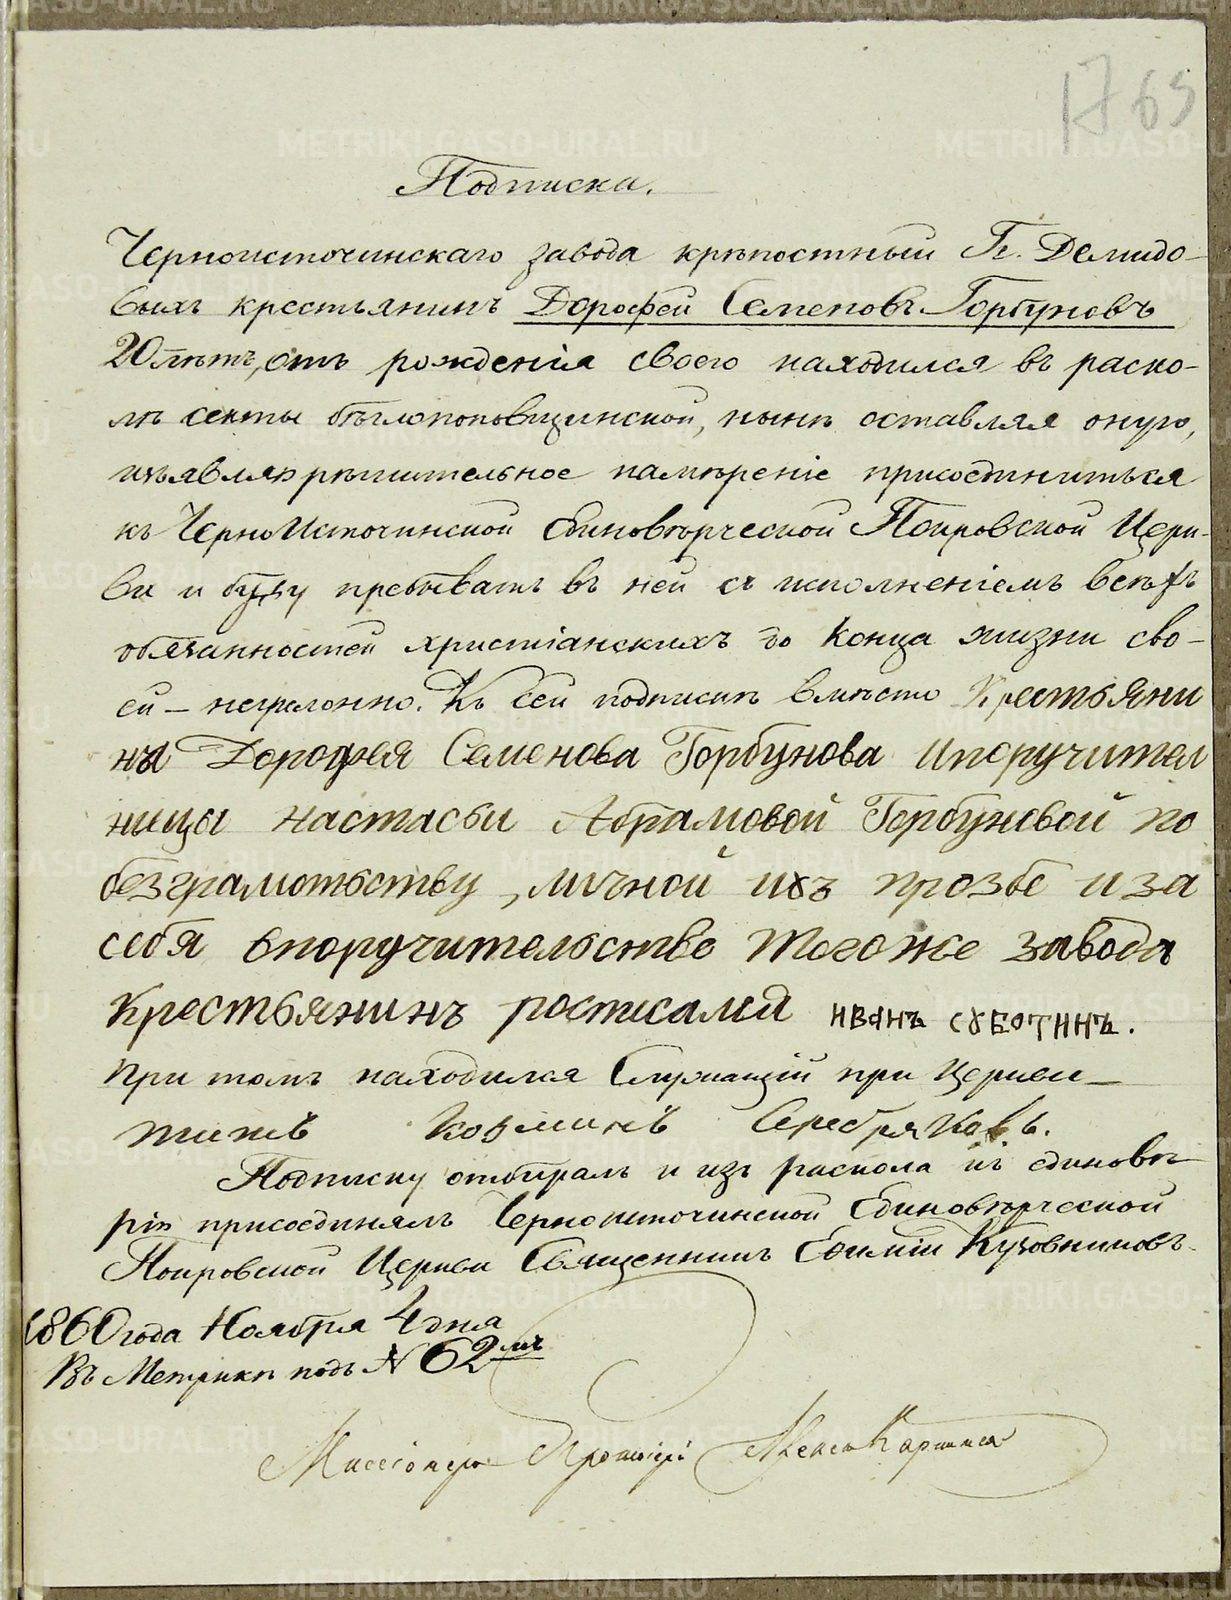 17 65
Подписка.
Черноисточинскаго завода крѣпостный Гг. Демидо-
выхъ крестьянинъ Дорофей Семеновъ Горбуновъ
20 лѣтъ, отъ рожденія своего находился въ раско-
лѣ секты бѣглопоповщинской, нынѣ оставляя оную,
изъявляю рѣшительное намѣреніе присоединиться
къ ЧерноИсточинской Единовѣрческой Покровской Церк-
ви и буду пребывать въ ней съ исполненіемъ всѣхъ
обязанностей христіанскихъ до конца жизни сво-
ей – неуклонно. Къ сей подпискѣ вмѣсто Крестьяни
на Дорофея Семенова Горбунова ипоручител
ницы настасьи Абрамовой Горбуновой по
безграмотьству, личной ихъ прозбе иза
себя впоручительство тогоже завода
Крестьянинъ росписался иванъ суботинъ.
При томъ находился Служащій при Церкви –
титъ Козминъ Серебряковъ.
Подписку отбиралъ и изъ раскола къ единовѣ-
рію присоединялъ Черноисточинской Единовѣрческой
Покровской Церкви Священникъ Евфимій Кузовниковъ.
1860 года Ноября 4 дня
Въ Метрикѣ подъ № 62мъ
Миссіонеръ Протоіерей
METRIKI.GASO-URAL.RU